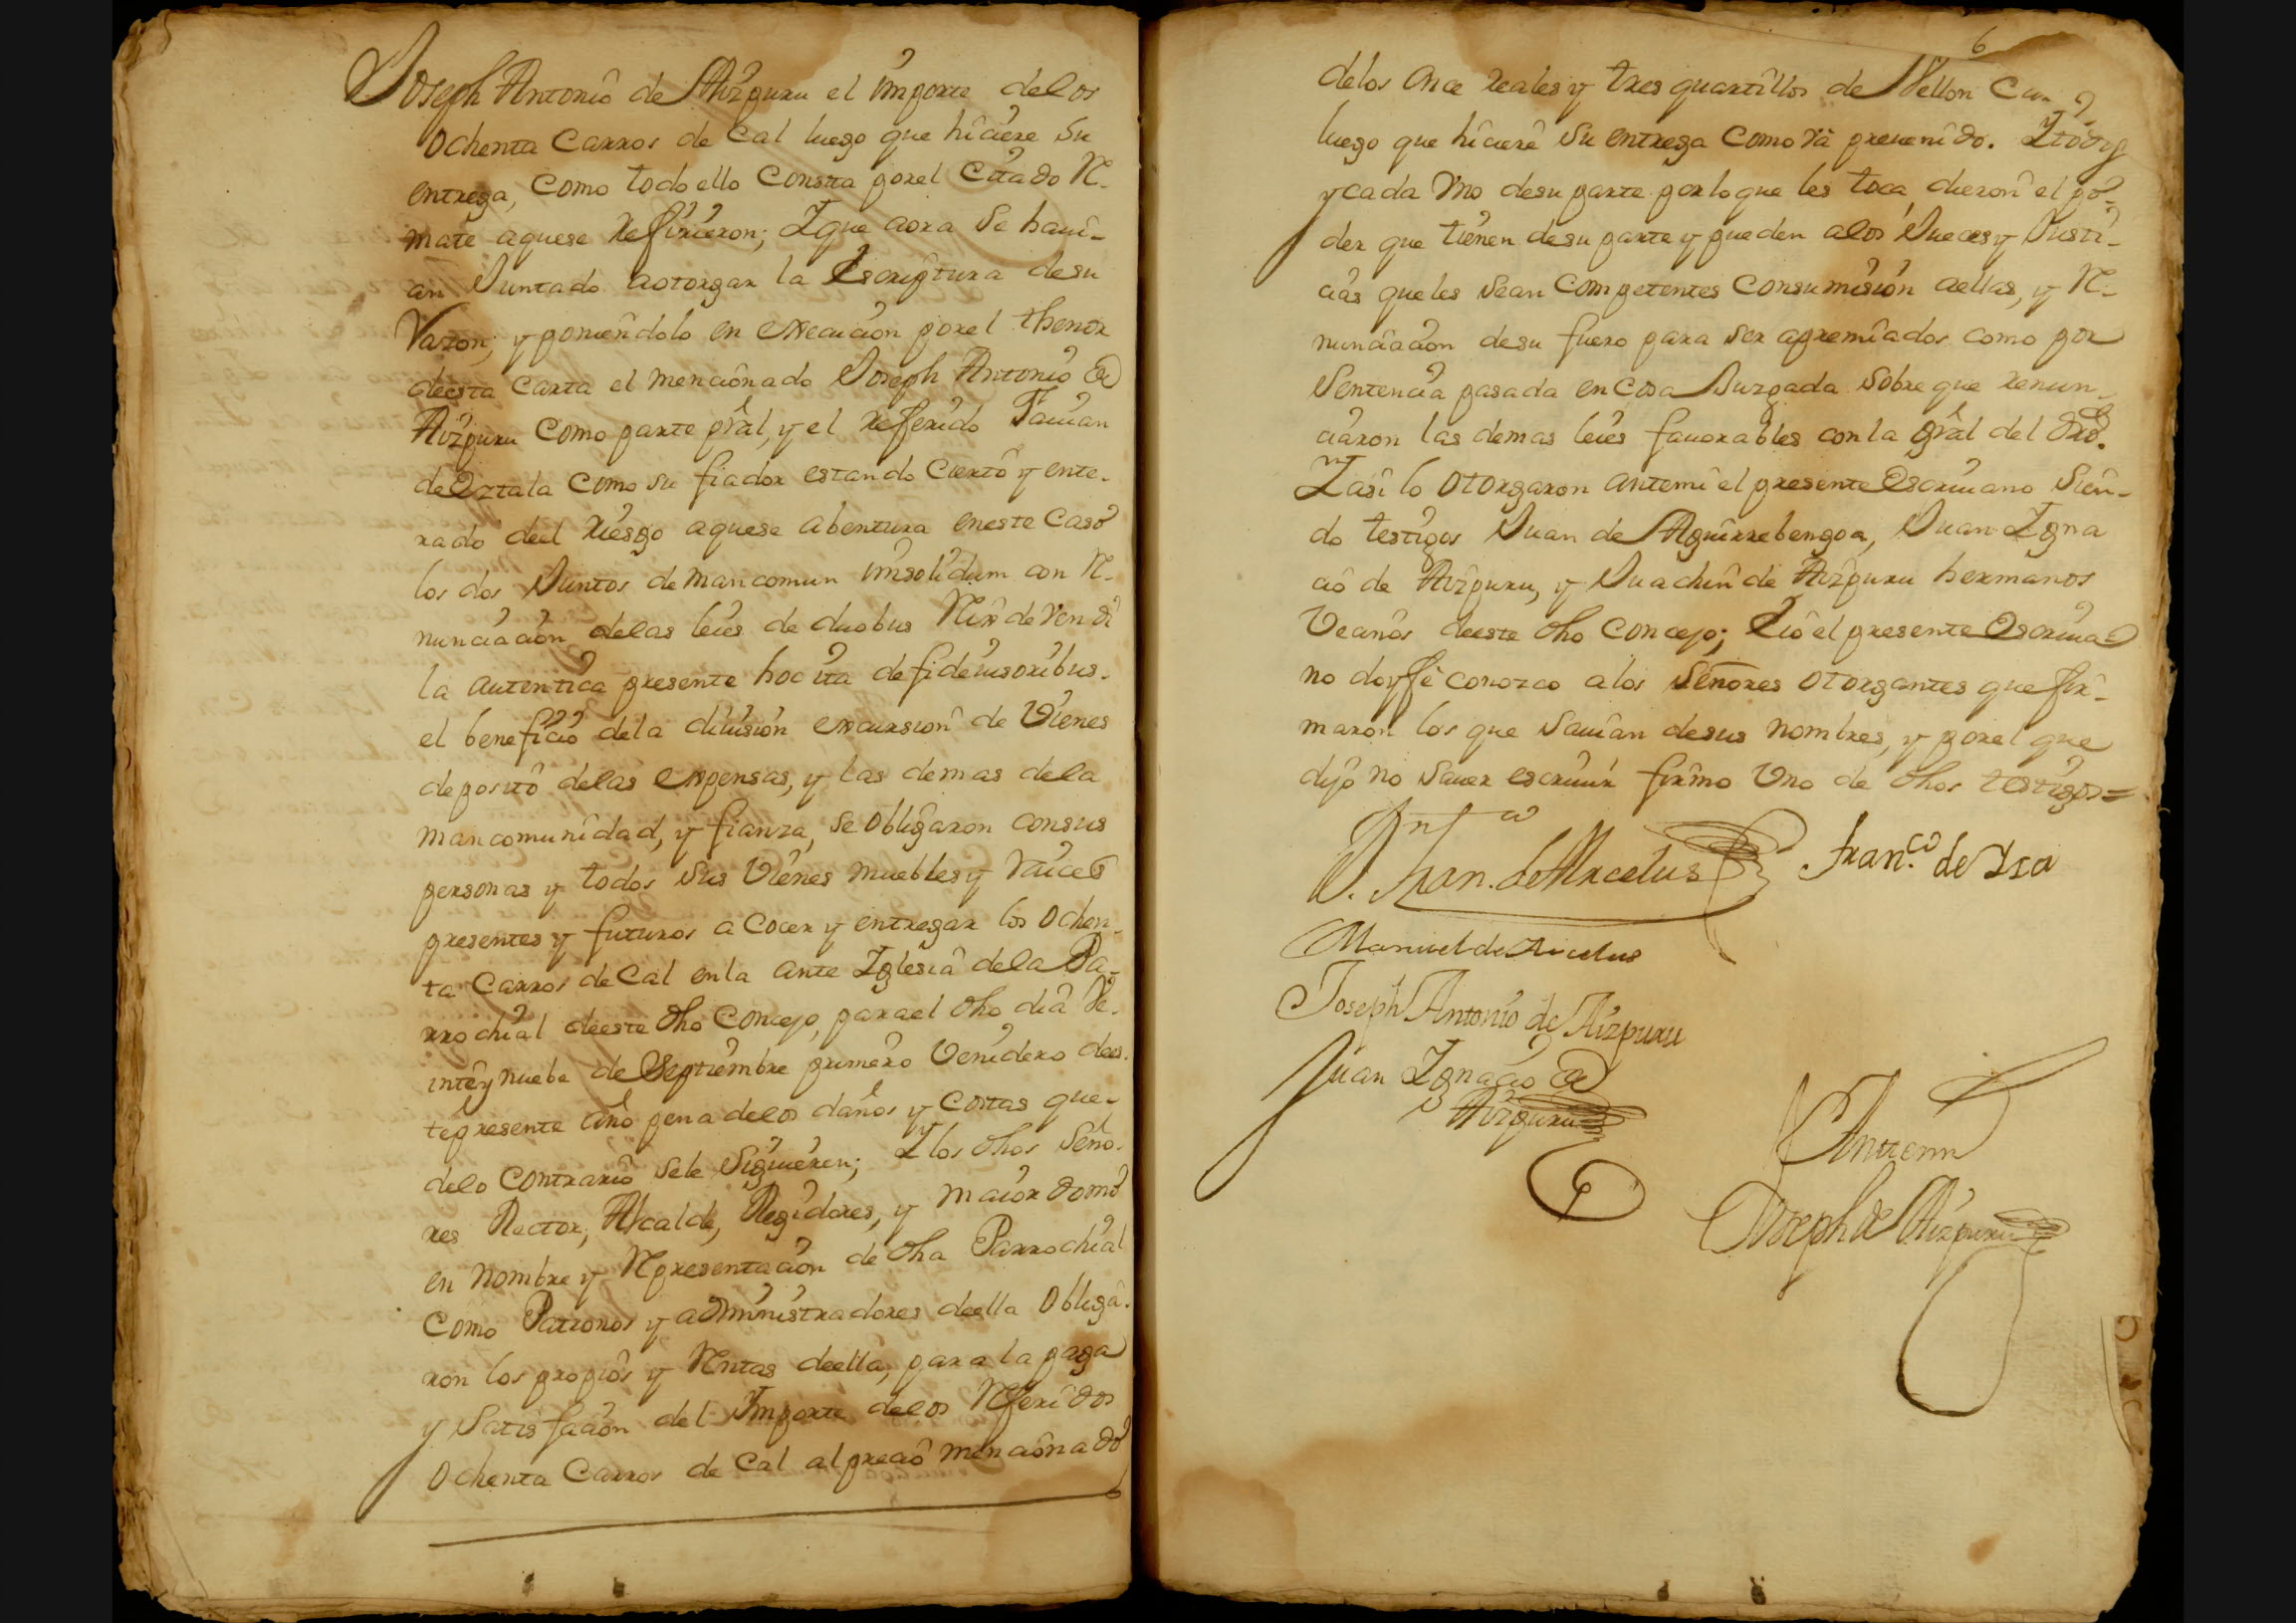 Joseph Antonio de Aizpuru el importe delos
Ochenta Carros de Cal luego que hiciere su
entrega, Como todo ello Consta porel Citado Re-
mate aquese Refirieron; Ique aora se havi-
an Juntado aotorgar la Escriptura desu
Razon; y poniendolo en execucion porel thenor
deesta Carta el mencionado Joseph Antonio de
Aizpuru Como parte pral, y el Referido Favian
de Oztala Como su fiador estando Cierto y ente-
rado deel Riesgo aquese abentura eneste Caso
los dos Juntos de mancomun imsolidum con Re-
nunciacion delas leies de duobus Reis devendi
la autentica presente hoc ita defidenisoribus.
el beneficio dela diuision excursion de Vienes
deposito delas expensas, y las demas dela
mancomunidad, y fianza, se obligaron consus
personas y todos sus Vienes muebles y Raices
presentes y futuros a Cocer y entregar los Ochen-
ta Carros de Cal enla ante Iglesia dela Pa-
rrochial deeste dho Concejo, parael dho dia Ve-
intey nuebe de Septiembre primero Venidero dees-
tepresente año pena delos daños y Costas que-
delo Contrario sele siguieren; I los dhos Seño-
res Rector, Alcalde, Regidores, y maiordomo
en nombre y Representacion de dha Parrochial
Como Patronos y administradores deella Obliga-
ron los propios y Rentas deella, para la paga
y Satisfacion del Importe delos Referidos
Ochenta Carros de Cal alprecio mencionado
6
delos Once Reales y tres quartillos de Vellon
luego que hiciere su entrega Como va preuenido.
y cada Vno desu parte porloque les toca, dieron el po-
der que tienen desu parte y pueden alos Jueces y Justi-
cias queles sean Competentes Consumision aellas, y Re-
nunciacion desu fuero para ser apremiados como por
Sentencia pasada en Cosa Juzgada sobre que renun-
ciaron las demas leies fauorables con la gral del dro.
I asi lo Otorgaron antemi el presente Escriuano sien-
do testigos Juan de Aguirrebengoa, Juan Igna
cio de Aizpuru, y Juachin de Aizpuru hermanos
Vecinos deeste dho Concejo; Eio el presente Escriua
no doyffe conozco a los Señores Otorgantes que fir-
maron los que sauian desus nombres, y porel que
dijo no sauer escriuir firmo Vno de dhos testigos=
D. Juan. de Arcelus
Fran.co de Isa
Manuel de Arcelus
Joseph Antonio de Aizpuru
Juan Ignacio de
Aizpuru
Antemi
Joseph de Aizpuru